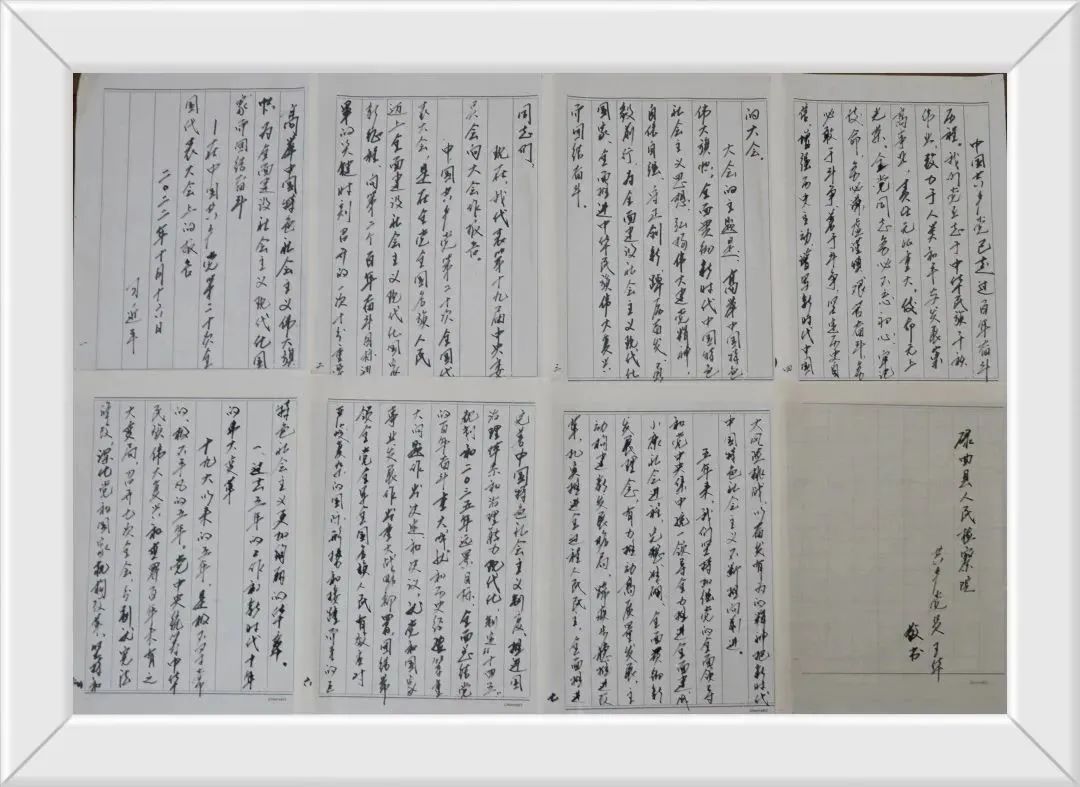 高举中国特色社会主义伟大旗
帜 为全面建设社会主义现代化国
家而团结奋斗
—在中国共产党第二十次全
国代表大会上的报告
二〇二二年十月十六日
习近平
一
同志们：
现在，我代表第十九届中央委
员会向大会作报告。
中国共产党第二十次全国代
表大会，是在全党全国各族人民
迈上全面建设社会主义现代化国家
新征程、向第二个百年奋斗目标进
军的关键时刻召开的一次十分重要
二
的大会。
大会的主题是：高举中国特色
伟大旗帜，全面贯彻新时代中国特色
社会主义思想，弘扬伟大建党精神，
自信自强、守正创新，踔厉奋发、勇
毅前行，为全面建设社会主义现代化
国家、全面推进中华民族伟大复兴
而团结奋斗。
三
中国共产党已走过百年奋斗
历程。我们党立志于中华民族千秋
伟业，致力于人类和平与发展崇
高事业，责任无比重大，使命无上
光荣。全党同志务必不忘初心、牢记
使命，务必谦虚谨慎、艰苦奋斗，务
必敢于斗争、善于斗争，坚定历史自
信，增强历史主动，谱写新时代中国
四
特色社会主义更加绚丽的华章。
一、过去五年的工作和新时代十年
的伟大变革
十九大以来的五年，是极不寻常
的、极不平凡的五年。党中央统筹中华
民族伟大复兴和世界百年未有之
大变局，召开七次全会，分别就宪法
修改，深化党和国家机构改革，坚持和
完善中国特色社会主义制度、推进国
治理体系和治理能力现代化，制定“十四五”
规划和二〇三五年远景目标，全面总结党
的百年奋斗重大成就和历史经验等重
大问题作出决定和决议，就党和国家
事业发展作出重大战略部署，团结带
领全党全军全国各族人民有效应对
严峻复杂的国际形势和接踵而至的巨
六
大风险挑战，以奋发有为的精神把新时代
中国特色社会主义不断推向前进。
五年来，我们坚持加强党的全面领导
和党中央集中统一领导，全力推进全面建成
小康社会进程，完整、准确、全面贯彻新
发展理念，有力推动高质量发展，主
动构建新发展格局，蹄疾步稳推进改
革，扎实推进全过程人民民主，全面推进
七
碌曲县人民检察院
共产党员 王华
敬书